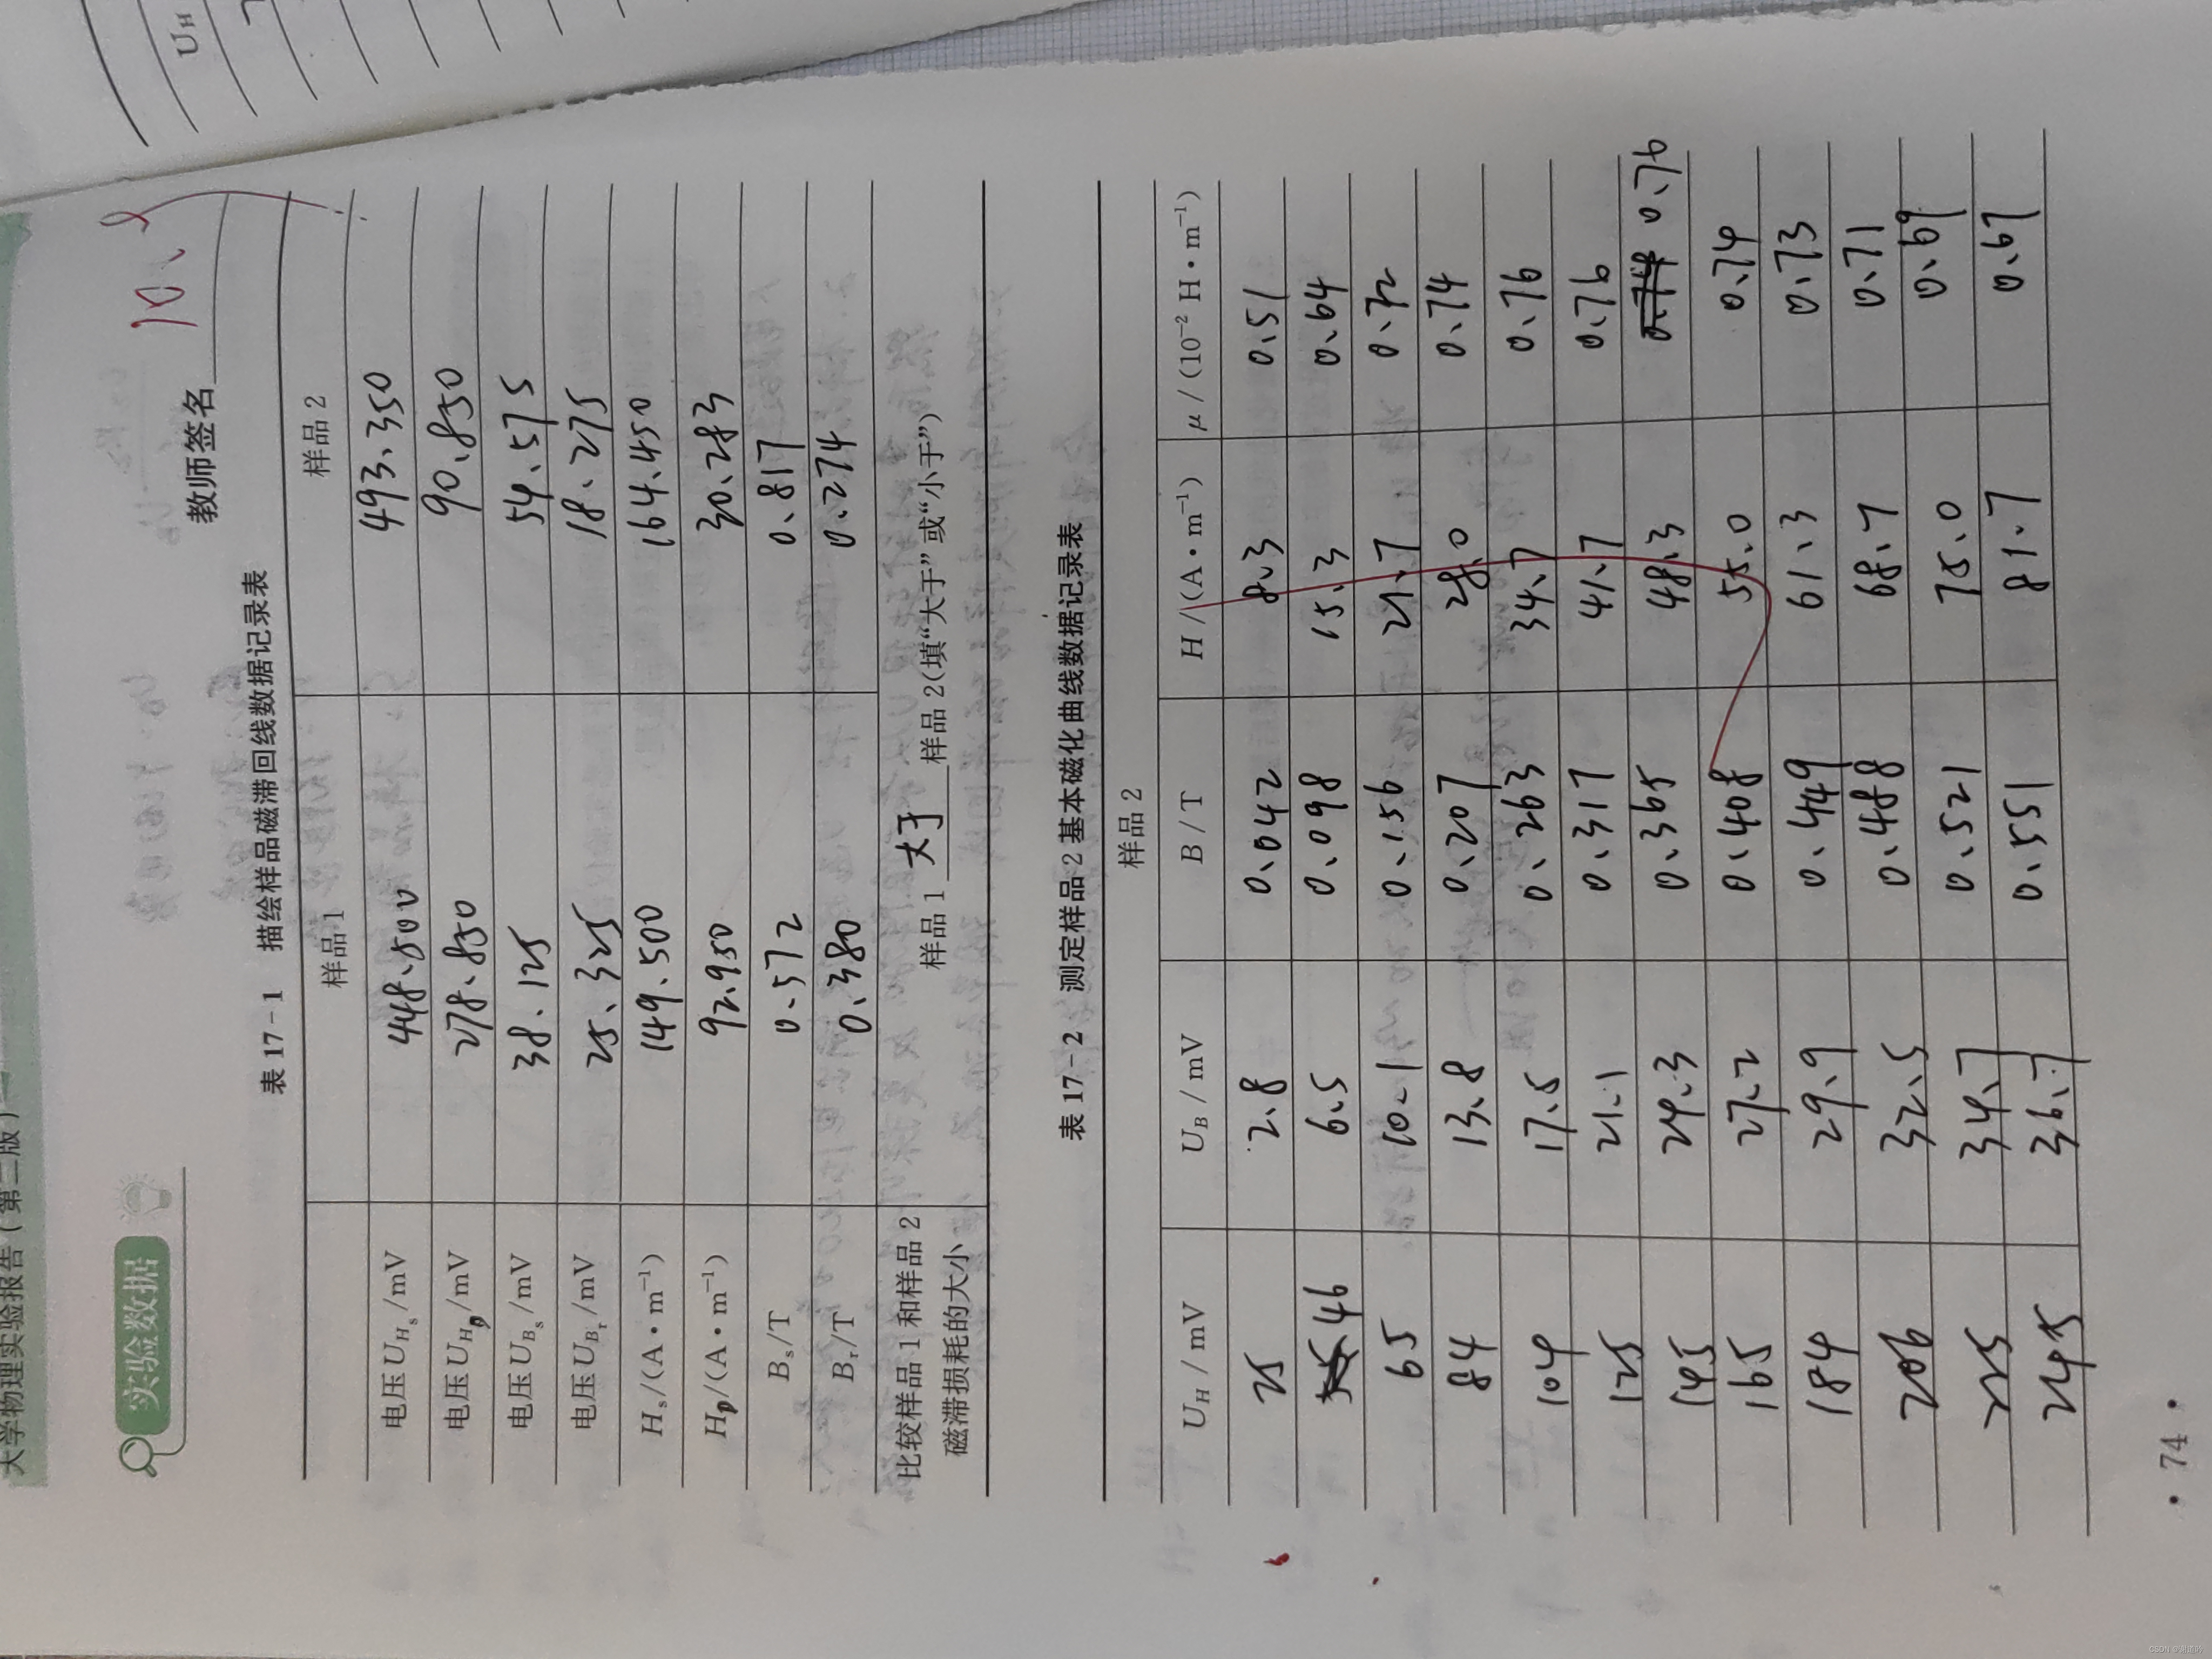 大学物理实验报告(第二版)
U_H
实验数据
教师签名
表 17-1 描绘样品磁滞回线数据记录表
样品1 样品 2
电压U_Hs/mV 448.500 493.350
电压U_HD/mV 278.850 90.850
电压U_Bs/mV 38.125 54.575
电压U_Br/mV 25.325 18.275
H_s/(A·m⁻¹) 149.500 164.450
H_D/(A·m⁻¹) 92.950 30.283
B_s/T 0.572 0.817
B_r/T 0.380 0.274
比较样品 1 和样品 2
磁滞损耗的大小
样品 1 大于 样品 2(填“大于”或“小于”)
表 17-2 测定样品 2 基本磁化曲线数据记录表
样品 2
U_H/mV U_B/mV B/T H/(A·m⁻¹) μ/(10⁻² H·m⁻¹)
25 2.8 0.042 8.3 0.51
46 6.5 0.098 15.3 0.64
65 10.1 0.156 21.7 0.72
84 13.8 0.207 28.0 0.74
104 17.5 0.263 34.7 0.76
125 21.1 0.317 41.7 0.76
145 24.3 0.365 48.3 0.76
165 27.2 0.408 55.0 0.74
184 29.9 0.449 61.3 0.73
206 32.5 0.488 68.7 0.71
225 34.7 0.521 75.0 0.69
245 36.7 0.551 81.7 0.67
· 74 ·